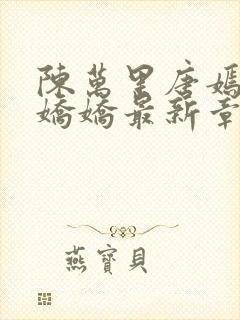 陳萬里唐嫣
嬌嬌最新章
燕寶貝